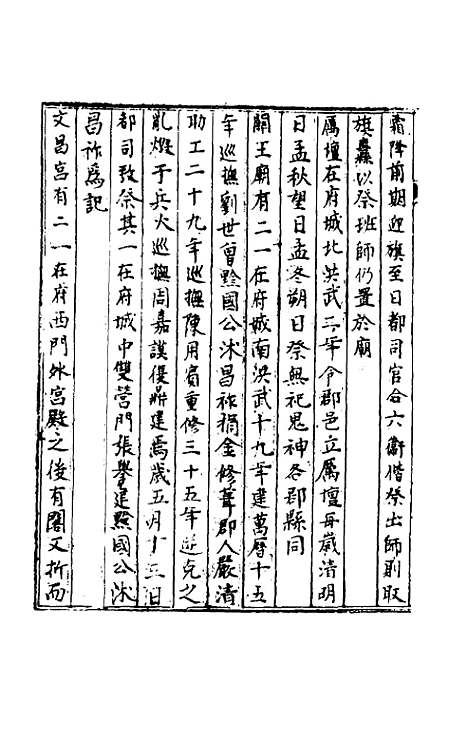 霜降前期迎旗至日都司官合六衛偕祭出師則取
旗纛以祭班師仍置於廟
厲壇在府城北洪武三年令郡邑立厲壇每歲清明
日孟秋望日孟冬朔日祭無祀鬼神各郡縣同
關王廟有二一在府城南洪武十九年建萬曆十五
年巡撫劉世曾黔國公沐昌祚捐金修葺郡人嚴清
助工二十九年巡撫陳用賓重修三十五年逆克之
亂燬于兵火巡撫周嘉謨復鼎建焉歲五月十三日
都司致祭其一在府城中雙營門張舉建黔國公沐
昌祚為記
文昌宮有二一在府西門外宮殿之後有閣又折而